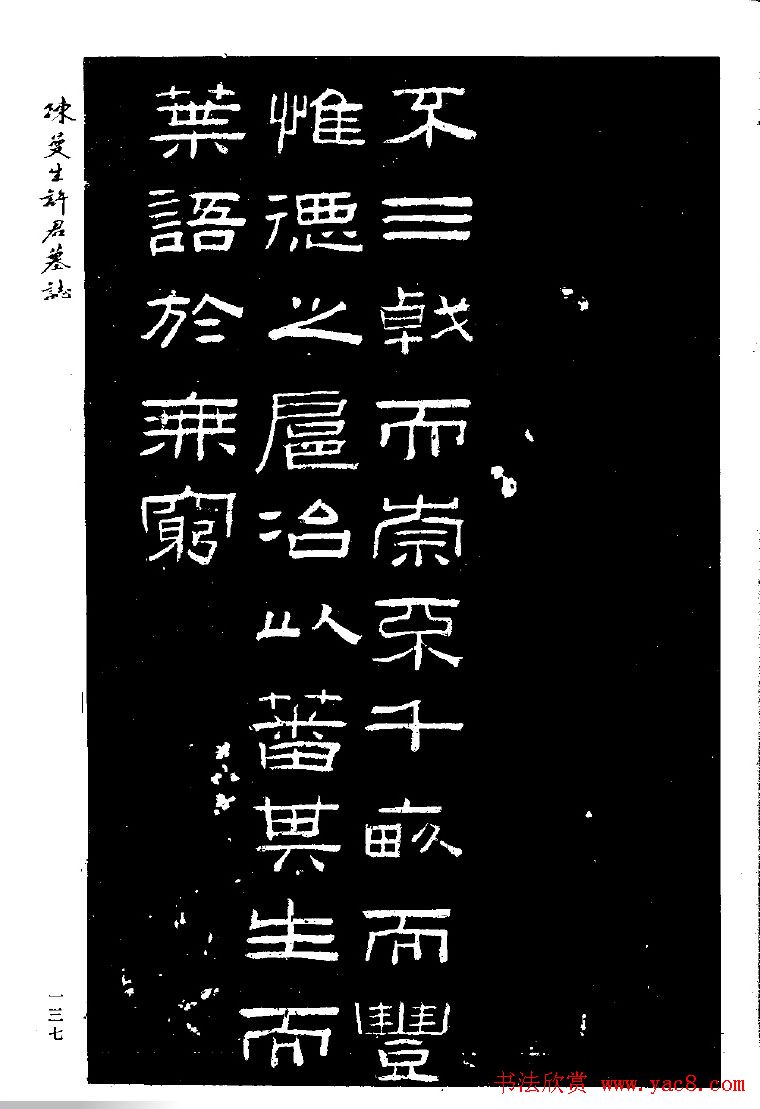 不三戟而崇不千畝而豐
惟德之扈冶以蕃其生而
葉語於無窮
陳曼生許君墓誌
一三七
书法欣赏 www.yac8.com